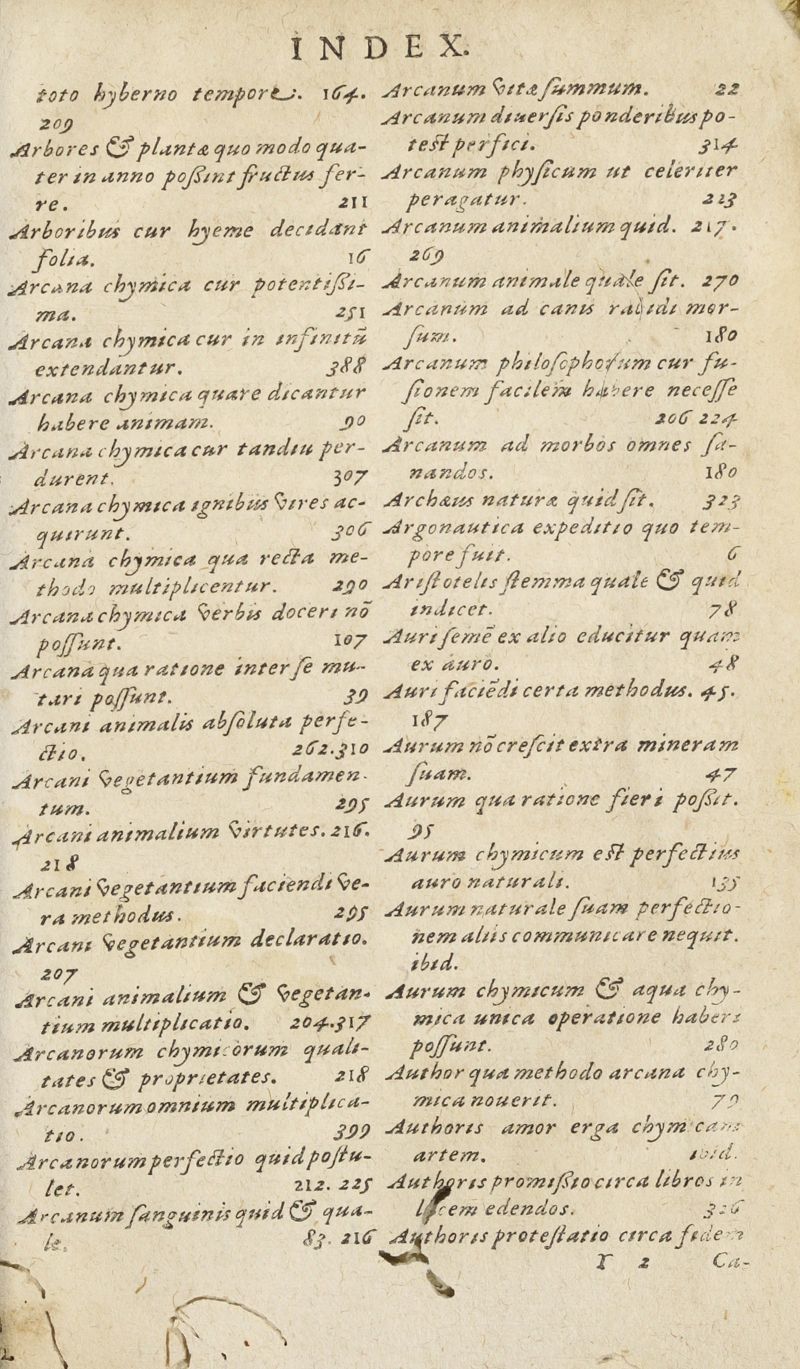 INDEX.
toto hyberno tempore. 164.
209
Arbores & plantæ quo modo qua-
ter in anno poßint fructus fer-
re. 211
Arboribus cur hyeme decidant
folia. 16
Arcana chymica cur potentißi-
ma. 251
Arcana chymica cur in infinitũ
extendantur. 388
Arcana chymica quare dicantur
habere animam. 90
Arcana chymica cur tandiu per-
durent. 307
Arcana chymica ignibus vires ac-
quirunt. 306
Arcana chymica qua recta me-
thodo multiplicentur. 290
Arcana chymica verbis doceri nõ
poſſunt. 107
Arcana qua ratione inter ſe mu-
tari poſſunt. 39
Arcani animalis abſoluta perfe-
ctio. 262.310
Arcani vegetantium fundamen-
tum. 295
Arcani animalium virtutes. 216.
218
Arcani vegetantium faciendi ve-
ra methodus. 295
Arcani vegetantium declaratio.
207
Arcani animalium & vegetan-
tium multiplicatio. 204.317
Arcanorum chymicorum quali-
tates & proprietates. 218
Arcanorum omnium multiplica-
tio. 399
Arcanorum perfectio quid poſtu-
let. 212. 225
Arcanum ſanguinis quid & qua-
le. 83. 216
Arcanum vitæ ſummum. 22
Arcanum diuerſis ponderibus po-
teſt perfici. 314
Arcanum phyſicum ut celeriter
peragatur. 223
Arcanum animalium quid. 217.
269
Arcanum animale quale ſit. 270
Arcanum ad canis rabidi mor-
ſum. 180
Arcanum philoſophorum cur fu-
ſionem facilem habere neceſſe
ſit. 206 224
Arcanum ad morbos omnes ſa-
nandos. 180
Archæus naturæ quid ſit. 323
Argonautica expeditio quo tem-
pore fuit. 6
Ariſtotelis ſtemma quale & quid
indicet. 78
Auri ſemẽ ex alio educitur quam
ex auro. 48
Auri faciẽdi certa methodus. 45.
187
Aurum nõ creſcit extra mineram
ſuam. 47
Aurum qua ratione fieri poßit.
95
Aurum chymicum eſt perfectius
auro naturali. 135
Aurum naturale ſuam perfectio-
nem aliis communicare nequit.
ibid.
Aurum chymicum & aqua chy-
mica unica operatione haberi
poſſunt. 280
Author qua methodo arcana chy-
mica nouerit. 79
Authoris amor erga chymicam
artem. ibid.
Authoris promißio circa libros in
lucem edendos. 326
Authoris proteſtatio circa fidem
T 2 Ca-